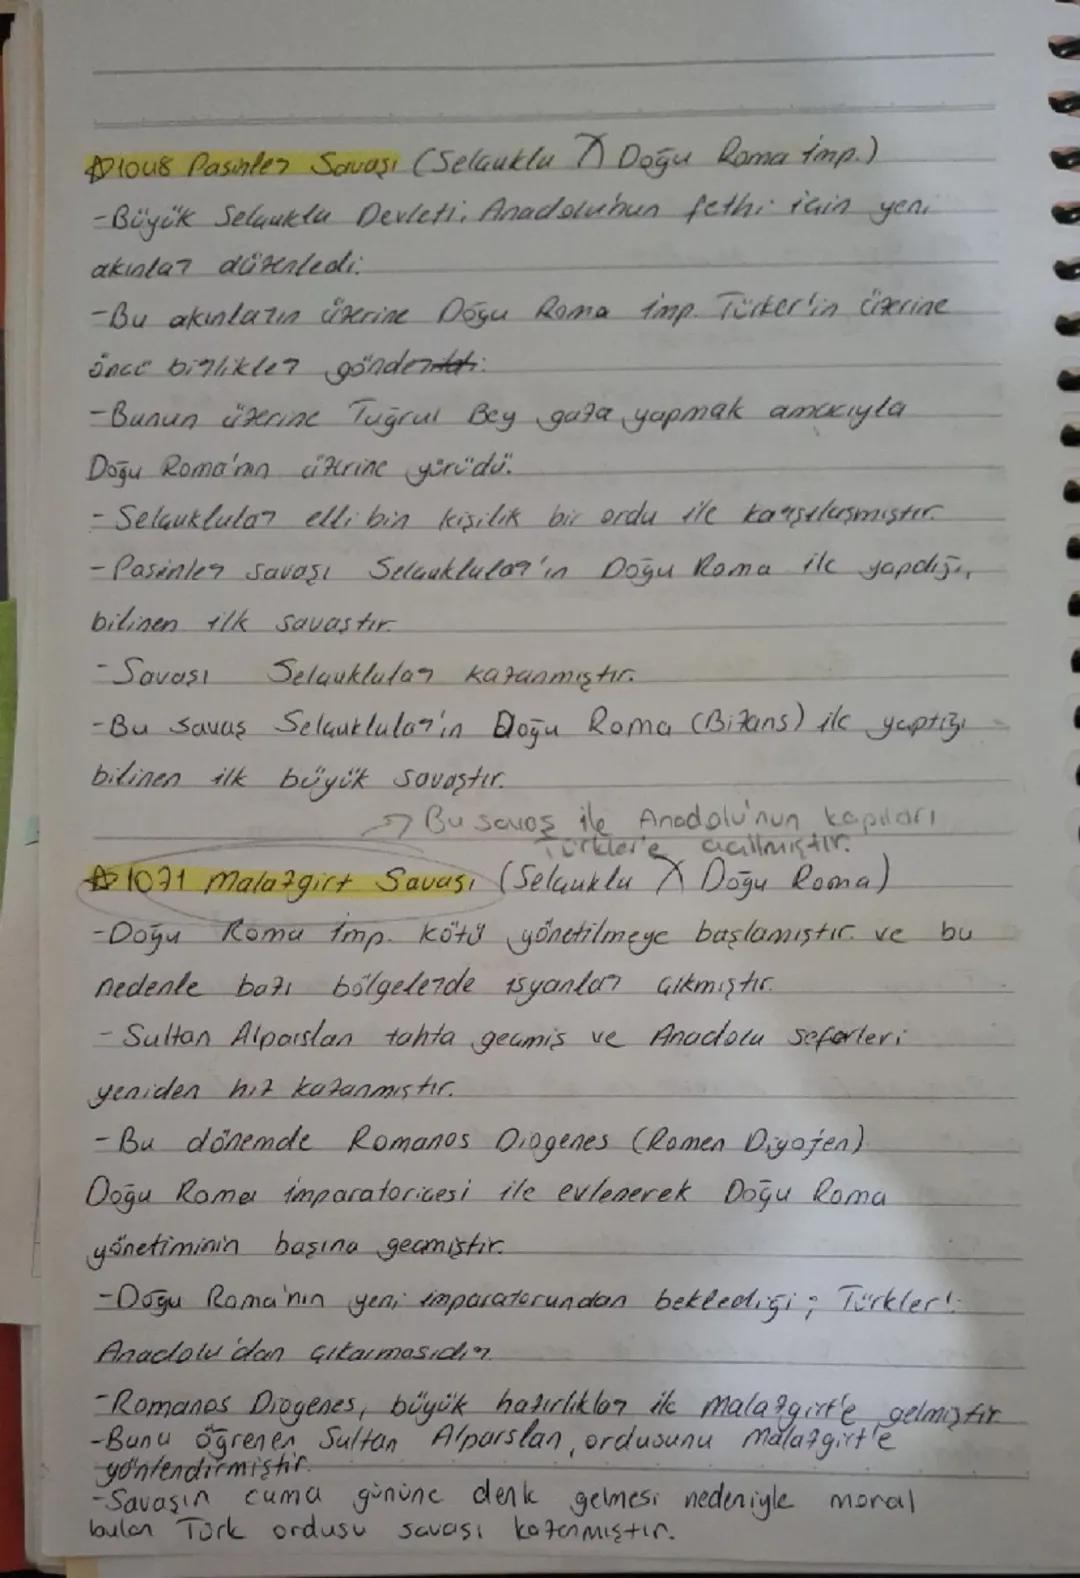 ☆1048 Pasinler Savaşı (Selçuklu X Doğu Roma İmp.)
-Büyük Selçuklu Devleti, Anadolu'nun fethi için yeni
akınlar düzenledi.
-Bu akınların üzerine Doğu Roma imp. Türkler'in üzerine
öncü birlikler gönderdi.
-Bunun üzerine Tuğrul Bey gaza yapmak amacıyla
Doğu Roma'nın üzerine yürüdü.
- Selçuklular elli bin kişilik bir ordu ile karşılaşmıştır.
-Pasinler savaşı Selçuklular'ın Doğu Roma ile yapdığı,
bilinen ilk savaştır.
-Savaşı Selçuklular kazanmıştır.
-Bu savaş Selçuklular'ın Doğu Roma (Bizans) ile yaptığı
bilinen ilk büyük savaştır.
→ Bu savaş ile Anadolu'nun kapıları
Türkler'e açılmıştır.
☆1071 Malazgirt Savaşı (Selçuklu X Doğu Roma)
-Doğu Roma İmp. kötü yönetilmeye başlamıştır ve bu
nedenle bazı bölgelerde isyanlar çıkmıştır.
- Sultan Alparslan tahta geçmiş ve Anadolu seferleri
yeniden hız kazanmıştır.
-Bu dönemde Romanos Diogenes (Romen Diyojen)
Doğu Roma imparatoriçesi ile evlenerek Doğu Roma
yönetiminin başına geçmiştir.
-Doğu Roma'nın yeni imparatorundan beklediği; Türkler'i
Anadolu'dan çıkarmasıdır.
-Romanos Diogenes, büyük hazırlıklar ile Malazgirt'e gelmiştir
-Bunu öğrenen Sultan Alparslan, ordusunu Malazgirt'e
yönlendirmiştir.
-Savaşın cuma gününe denk gelmesi nedeniyle moral
bulan Türk ordusu savaşı kazanmıştır.